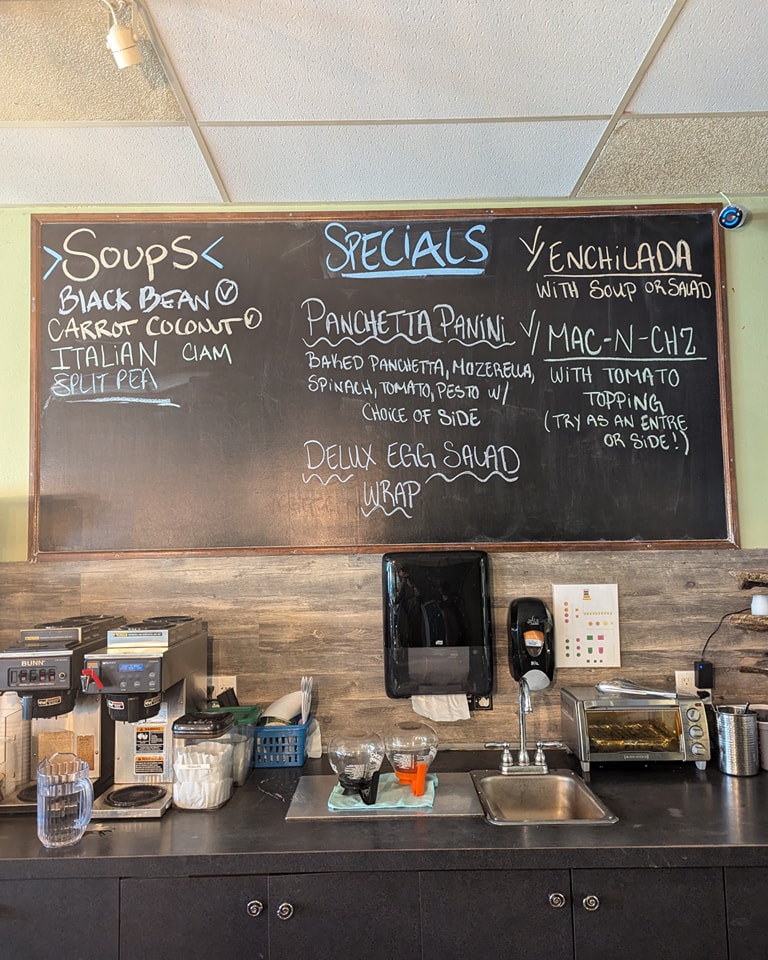 > Soups <
BLACK BEAN V
CARROT COCONUT V
ITALIAN CLAM
SPLIT PEA
SPECIALS
PANCHETTA PANINI
BAKED PANCHETTA, MOZERELLA,
SPINACH, TOMATO, PESTO W/
CHOICE OF SIDE
DELUX EGG SALAD
WRAP
V ENCHILADA
WITH SOUP OR SALAD
V MAC-N-CHZ
WITH TOMATO
TOPPING
(TRY AS AN ENTRE
OR SIDE!)
BUNN